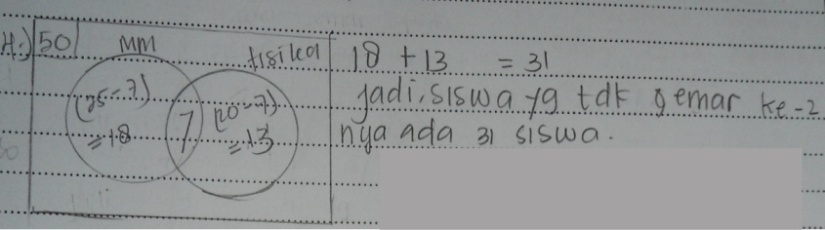 4.) 50 MM fisika
(25-7) 7 (20-7)
= 18 = 13
18 + 13 = 31
jadi, siswa yg tdk gemar ke-2
nya ada 31 siswa.